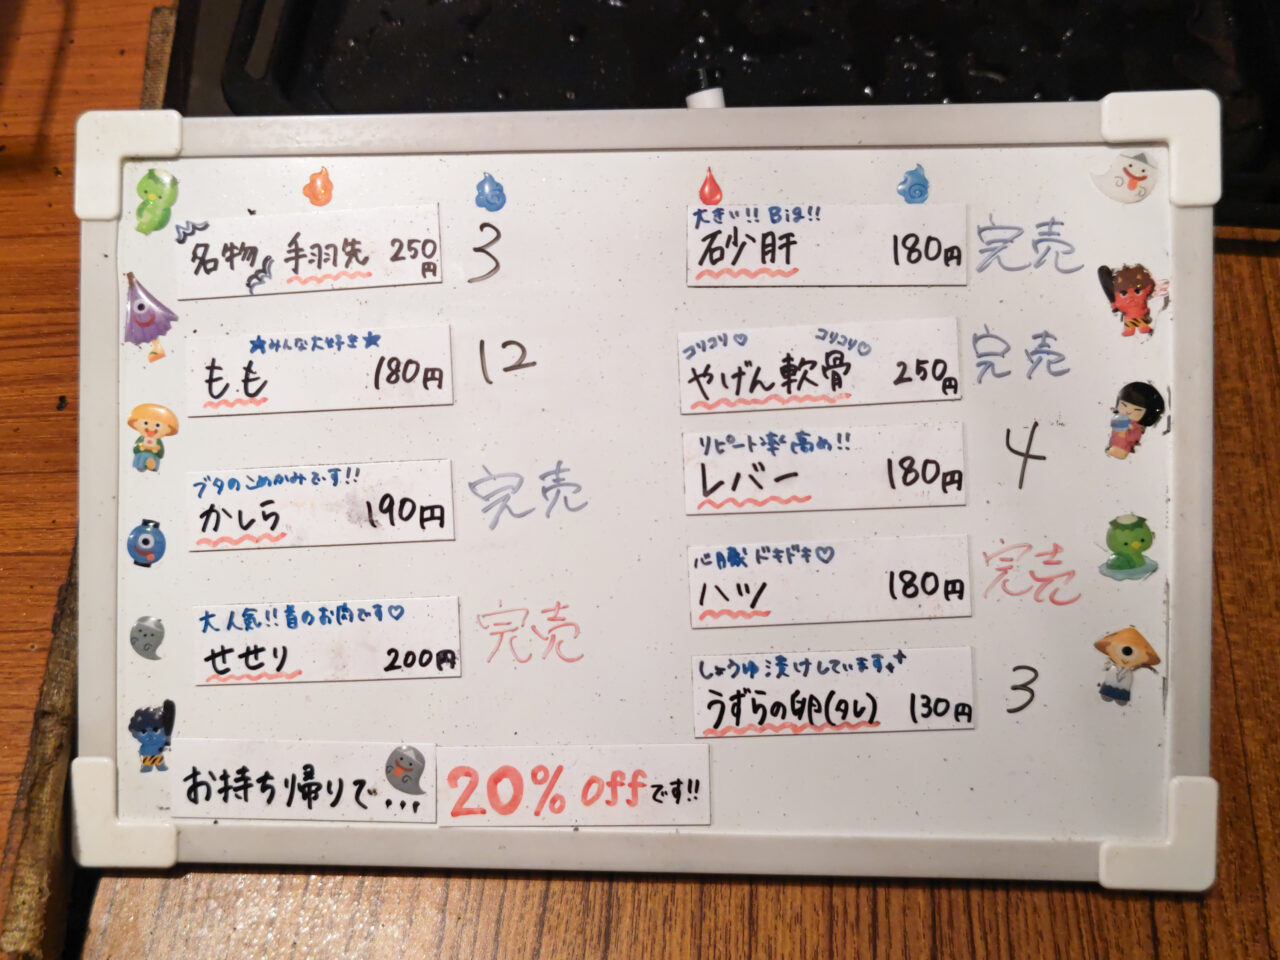 名物 手羽先 250円 3
★みんな大好き★
もも 180円 12
ブタのこめかみです!!
かしら 190円 完売
大人気!!首のお肉です♡
せせり 200円 完売
お持ち帰りで... 20% offです!!
大きい!! Big!!
砂肝 180円 完売
コリコリ♡ コリコリ♡
やげん軟骨 250円 完売
リピート率高め!!
レバー 180円 4
心臓ドキドキ♡
ハツ 180円 完売
しょうゆ漬けしています
うずらの卵(タレ) 130円 3